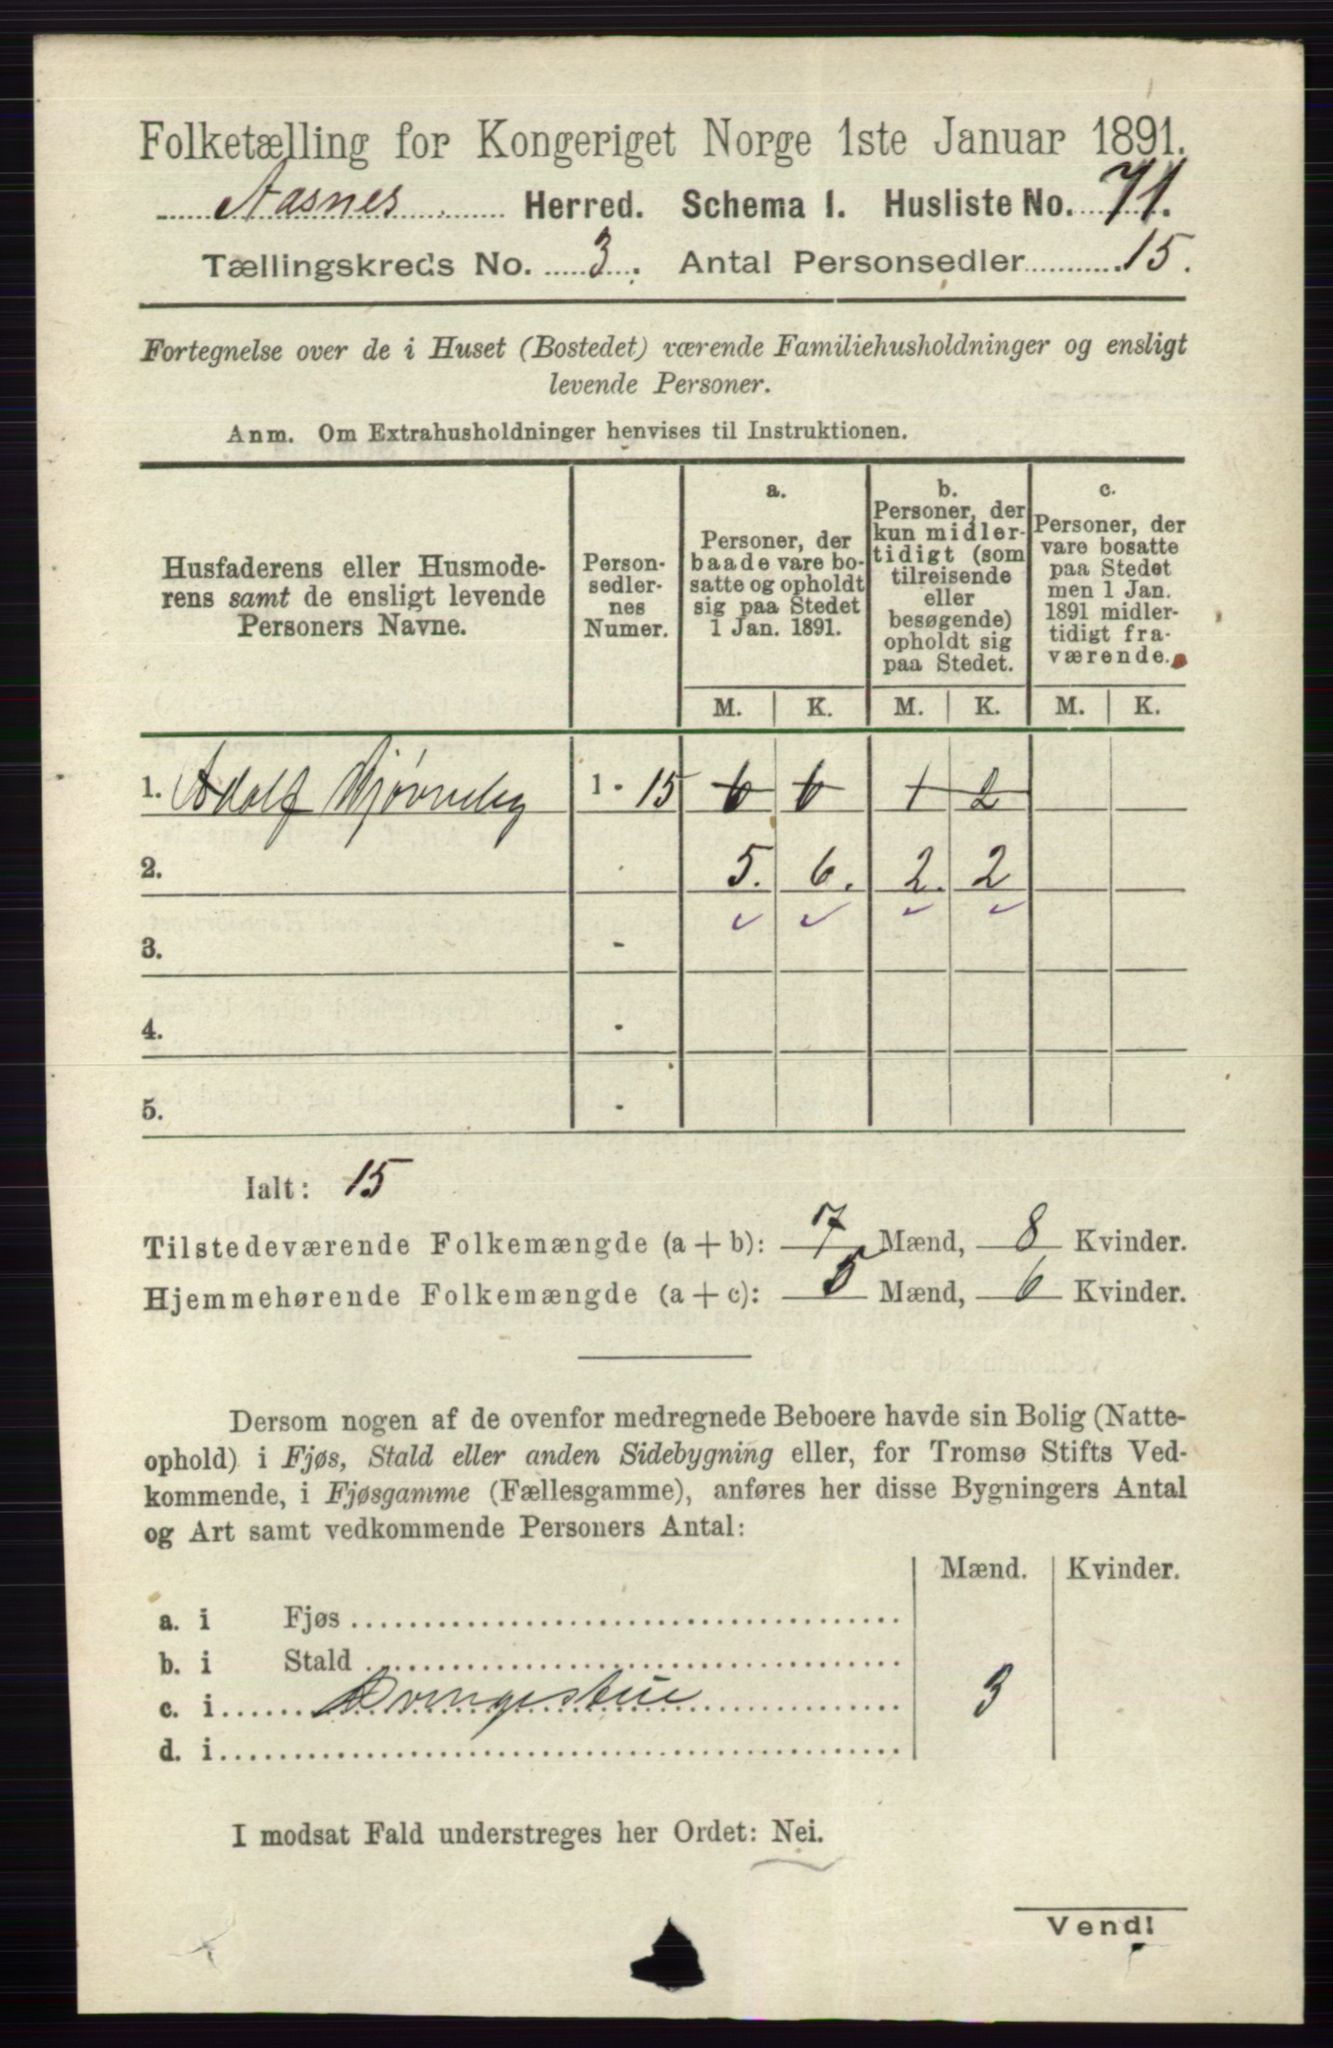 Folketælling for Kongeriget Norge 1ste Januar 1891.
Aasnes Herred. Schema I. Husliste No. 71.
Tællingskreds No. 3. Antal Personsedler 15.
Fortegnelse over de i Huset (Bostedet) værende Familiehusholdninger og ensligt
levende Personer.
Anm. Om Extrahusholdninger henvises til Instruktionen.
Husfaderens eller Husmode-
rens samt de ensligt levende
Personers Navne.
Person-
sedler-
nes
Numer.
a.
Personer, der
baade vare bo-
satte og opholdt
sig paa Stedet
1 Jan. 1891.
b.
Personer, der
kun midler-
tidigt (som
tilreisende
eller
besøgende)
opholdt sig
paa Stedet.
c.
Personer, der
vare bosatte
paa Stedet
men 1 Jan.
1891 midler-
tidigt fra-
værende.
M. K. M. K. M. K.
1. Adolf 1 - 15 6 6 1 2
2. 5. 6. 2. 2
3. -
4. -
5. -
Ialt: 15
Tilstedeværende Folkemængde (a + b): 7 Mænd, 8 Kvinder.
Hjemmehørende Folkemængde (a + c): 5 Mænd, 6 Kvinder.
Dersom nogen af de ovenfor medregnede Beboere havde sin Bolig (Natte-
ophold) i Fjøs, Stald eller anden Sidebygning eller, for Tromsø Stifts Ved-
kommende, i Fjøsgamme (Fællesgamme), anføres her disse Bygningers Antal
og Art samt vedkommende Personers Antal:
Mænd. Kvinder.
a. i Fjøs
b. i Stald
c. i Drengestue 3
d. i
I modsat Fald understreges her Ordet: Nei.
Vend!